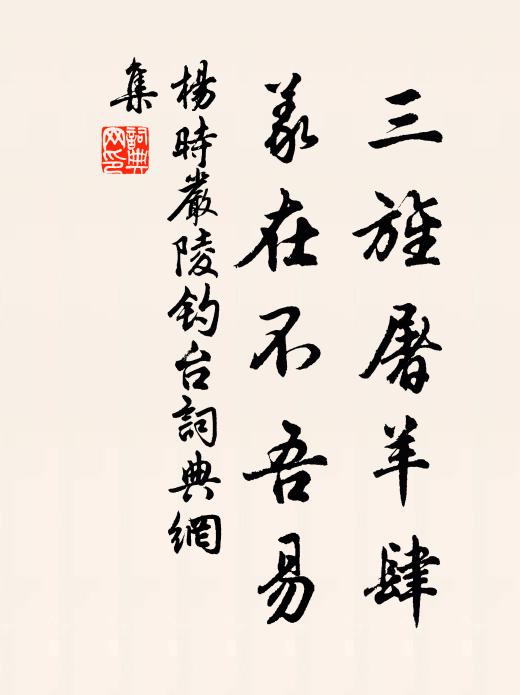 三旌屠羊肆
義在不吾易
楊時嚴陵釣台詞典網
集
詞典网印